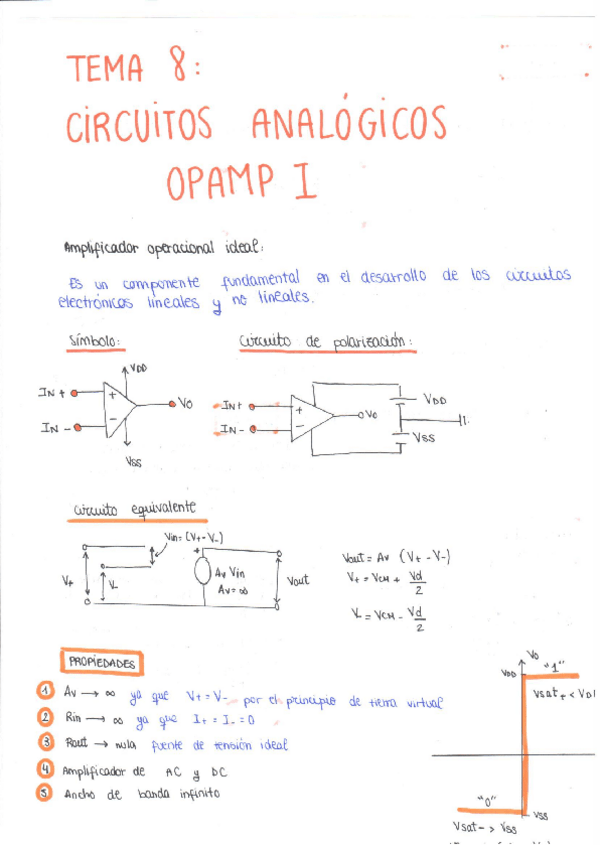 TEMA 8:
CIRCUITOS ANALÓGICOS
OPAMP I
Amplificador operacional ideal:
Es un componente fundamental en el desarrollo de los circuitos
electrónicos lineales y no lineales.
Símbolo:
Circuito de polarización:
VDD
IN +
+
VO
IN -
-
VSS
IN+
+
VO
VDD
IN -
-
VSS
Circuito equivalente
Vin = (V+ - V-)
+
V+
V-
Av Vin
Av = ∞
Vout
Vout = Av (V+ - V-)
V+ = VCM + Vd/2
V- = VCM - Vd/2
PROPIEDADES
1 Av → ∞ ya que V+ = V- por el principio de tierra virtual
2 Rin → ∞ ya que I+ = I- = 0
3 Rout → nula fuente de tensión ideal
4 Amplificador de AC y DC
5 Ancho de banda infinito
Vo
VDD
"1"
Vsat+ < VD
"0"
VSS
Vsat- > VSS